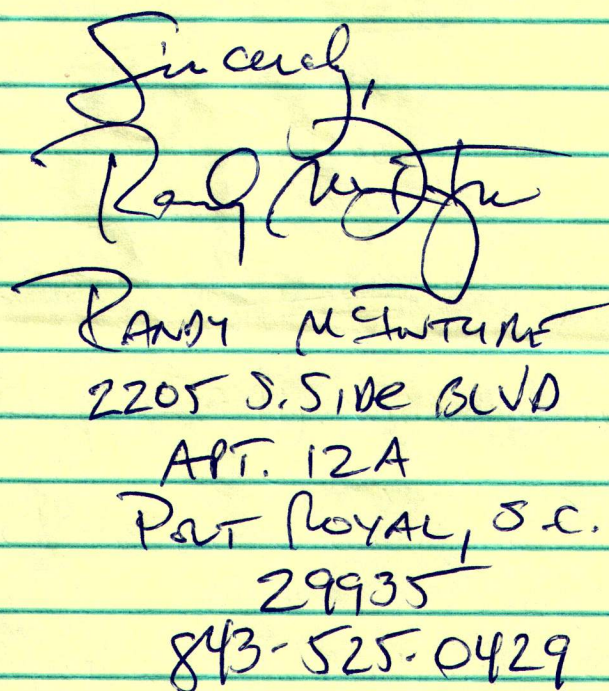 Sincerely,
Randy McIntyre
RANDY McINTYRE
2205 S. SIDE BLVD
APT. 12A
PORT ROYAL, S.C.
29935
843-525-0429